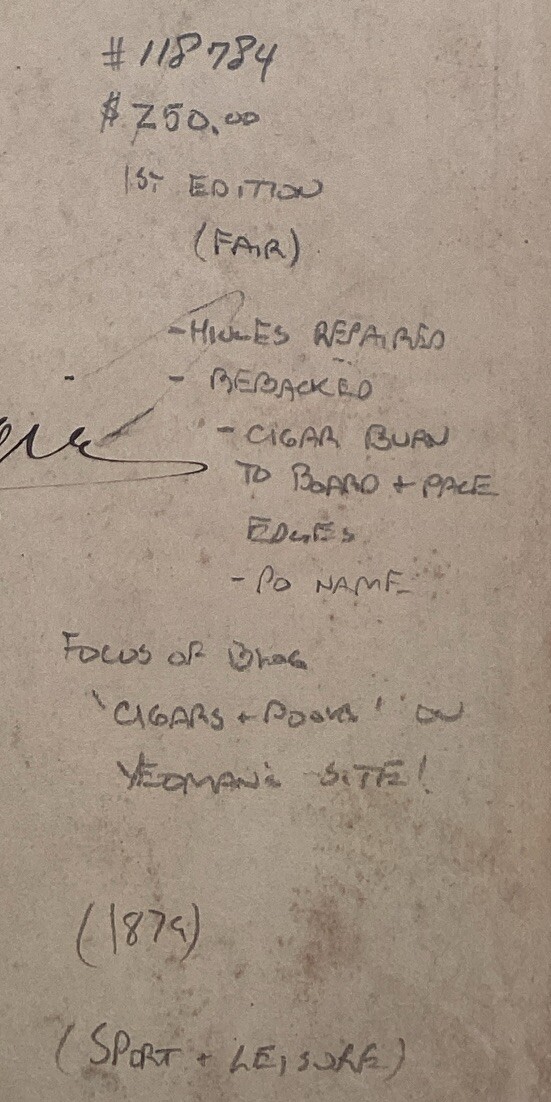 #118784
$250.00
1ST EDITION
(FAIR)
-HINGES REPAIRED
- REBACKED
- CIGAR BURN
TO BOARD + PAGE
EDGES
- PO NAME
FOCUS OF BLOG
'CIGARS + BOOKS' ON
YEOMAN'S SITE!
(1879)
(SPORT + LEISURE)